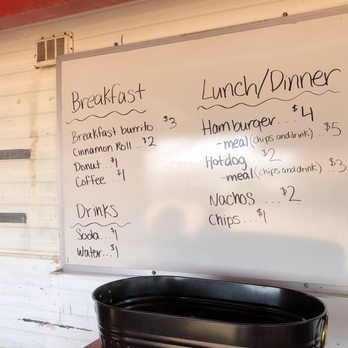 Breakfast
Breakfast burrito $3
Cinnamon Roll... $2
Donut... $1
Coffee... $1
Drinks
Soda... $1
Water... $1
Lunch/Dinner
Hamburger... $4
-meal (chips and drink)... $5
Hotdog $2
-meal (chips and drink)... $3
Nachos... $2
Chips... $1